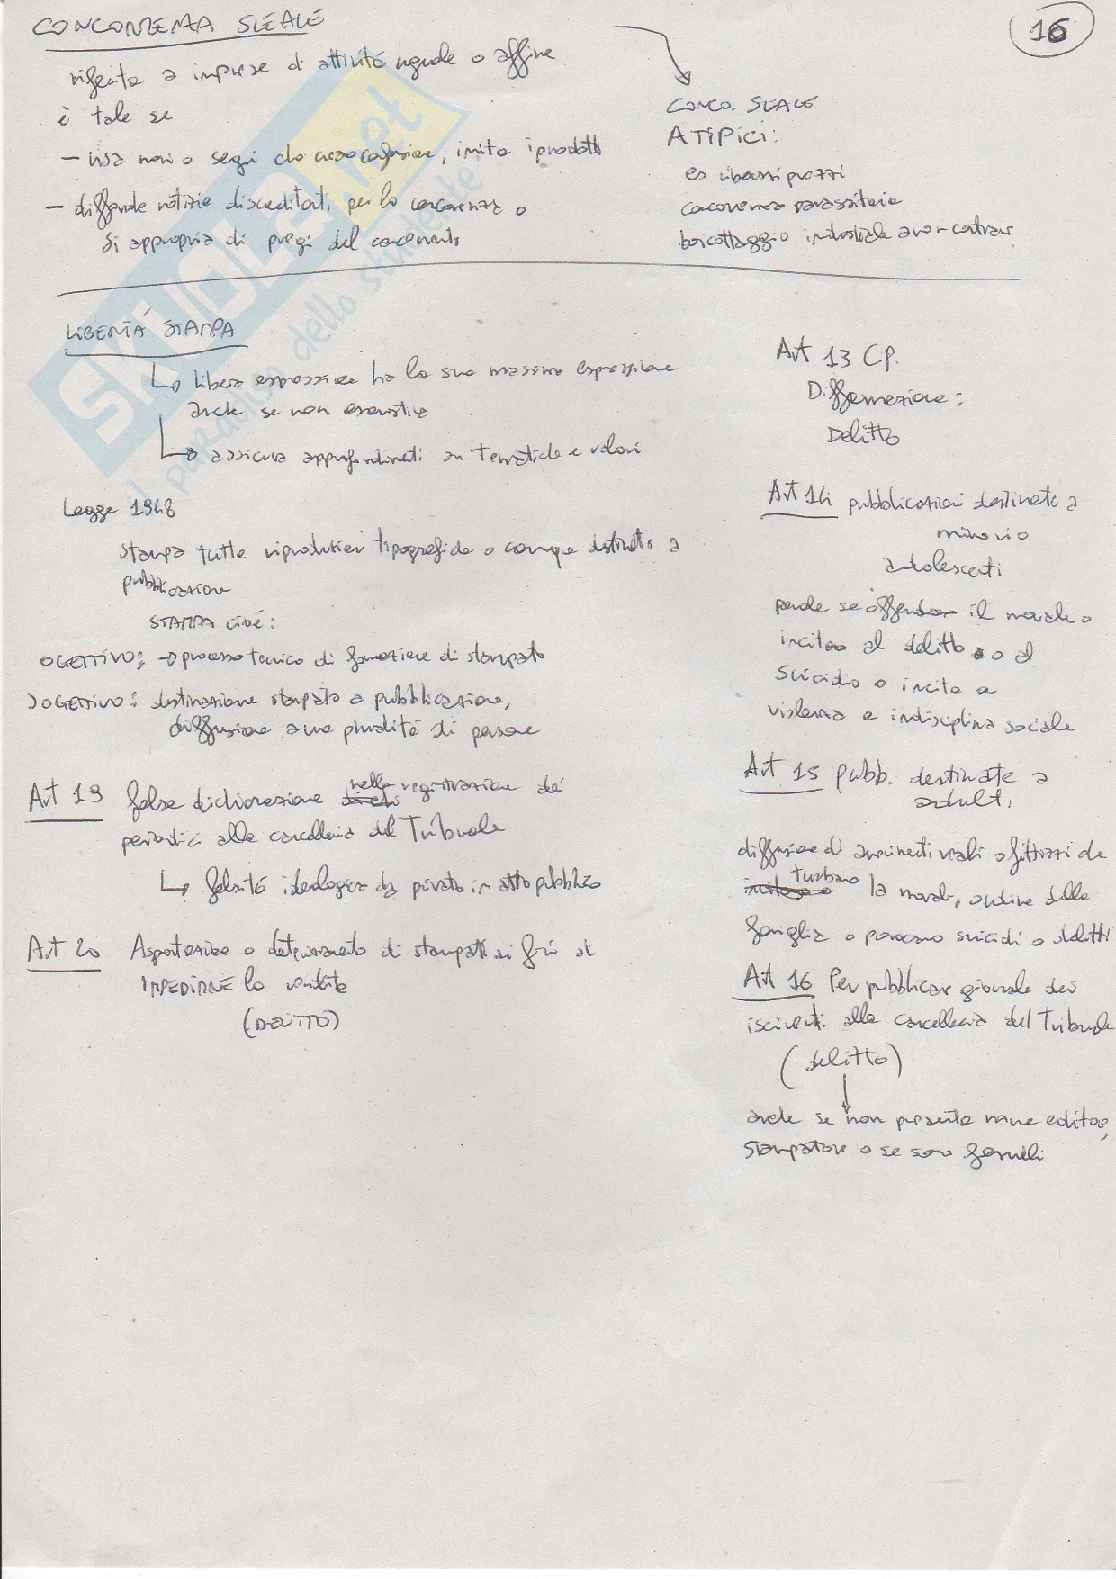 CONCORRENZA SLEALE
16
riferita a imprese di attività uguale o affine
è tale se
- usa nomi o segni che creano confusione, imita i prodotti
- diffonde notizie discreditanti per lo concorrenza o
si appropria di pregi del concorrente
CONCO. SLEALE
ATIPICI:
es ribassi prezzi
concorrenza parassitaria
boicottaggio industriale a non contrarre
LIBERTÀ STAMPA
libera espressione ha la sua massima espressione
anche se non esaustiva
assicura approfondimenti su tematiche e valori
Legge 1948
stampa tutte riproduzioni tipografiche o comunque destinate a
pubblicazione
STAMPA cioè:
OGETTIVO: processo tecnico di formazione di stampato
SOGETTIVO: destinazione stampato a pubblicazione,
diffusione a una pluralità di persone
Art 19 false dichiarazione nella registrazione dei
periodici alla cancelleria del Tribunale
falsità ideologica da privato in atto pubblico
Art 20 Asportazione o deterioramento di stampati ai fini di
IMPEDIRNE la vendita
(DELITTO)
Art 13 C.P.
Diffamazione:
Delitto
Art 14 pubblicazioni destinate a
minori o
adolescenti
quando se offendono il morale o
incitano al delitto o al
suicidio o incita a
violenza e indisciplina sociale
Art 15 Pubb. destinate a
adulti
diffusione di avvenimenti reali o fittizi che
turbano la morale, ordine delle
famiglia o provocano suicidi o delitti
Art 16 Per pubblicare giornale devi
iscriverti alla cancelleria del Tribunale
(delitto)
anche se non presenta nome editore,
stampatore o se sono fasulli
SKUOLA.net
il paradiso dello studente